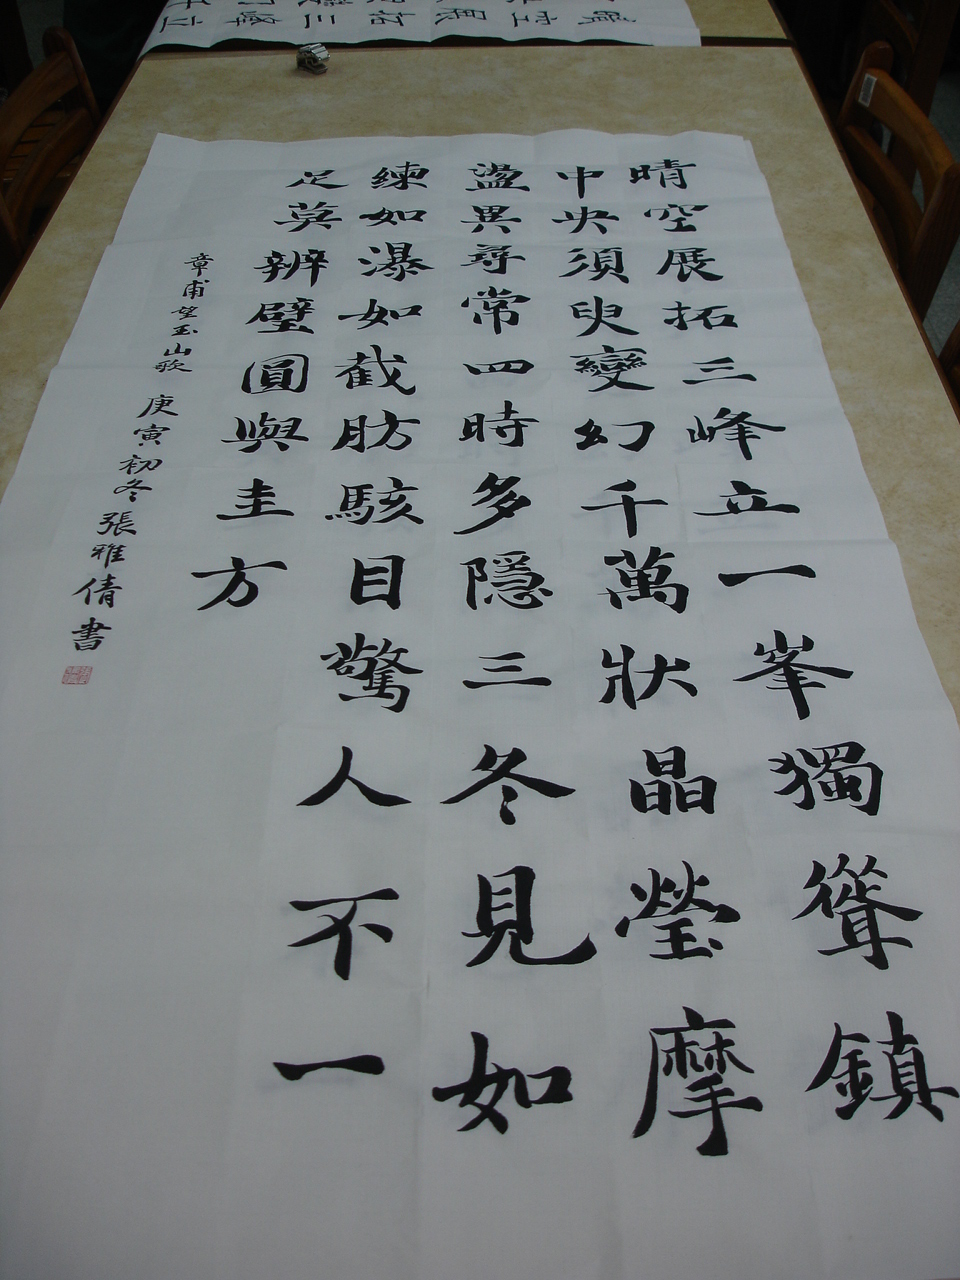 晴空展拓三峰立一峯獨聳鎮
中央須臾變幻千萬狀晶瑩摩
盪異尋常四時多隱三冬見如
練如瀑如截肪駭目驚人不一
足莫辨璧圓與圭方
章甫望玉山歌 庚寅初冬張雅倩書